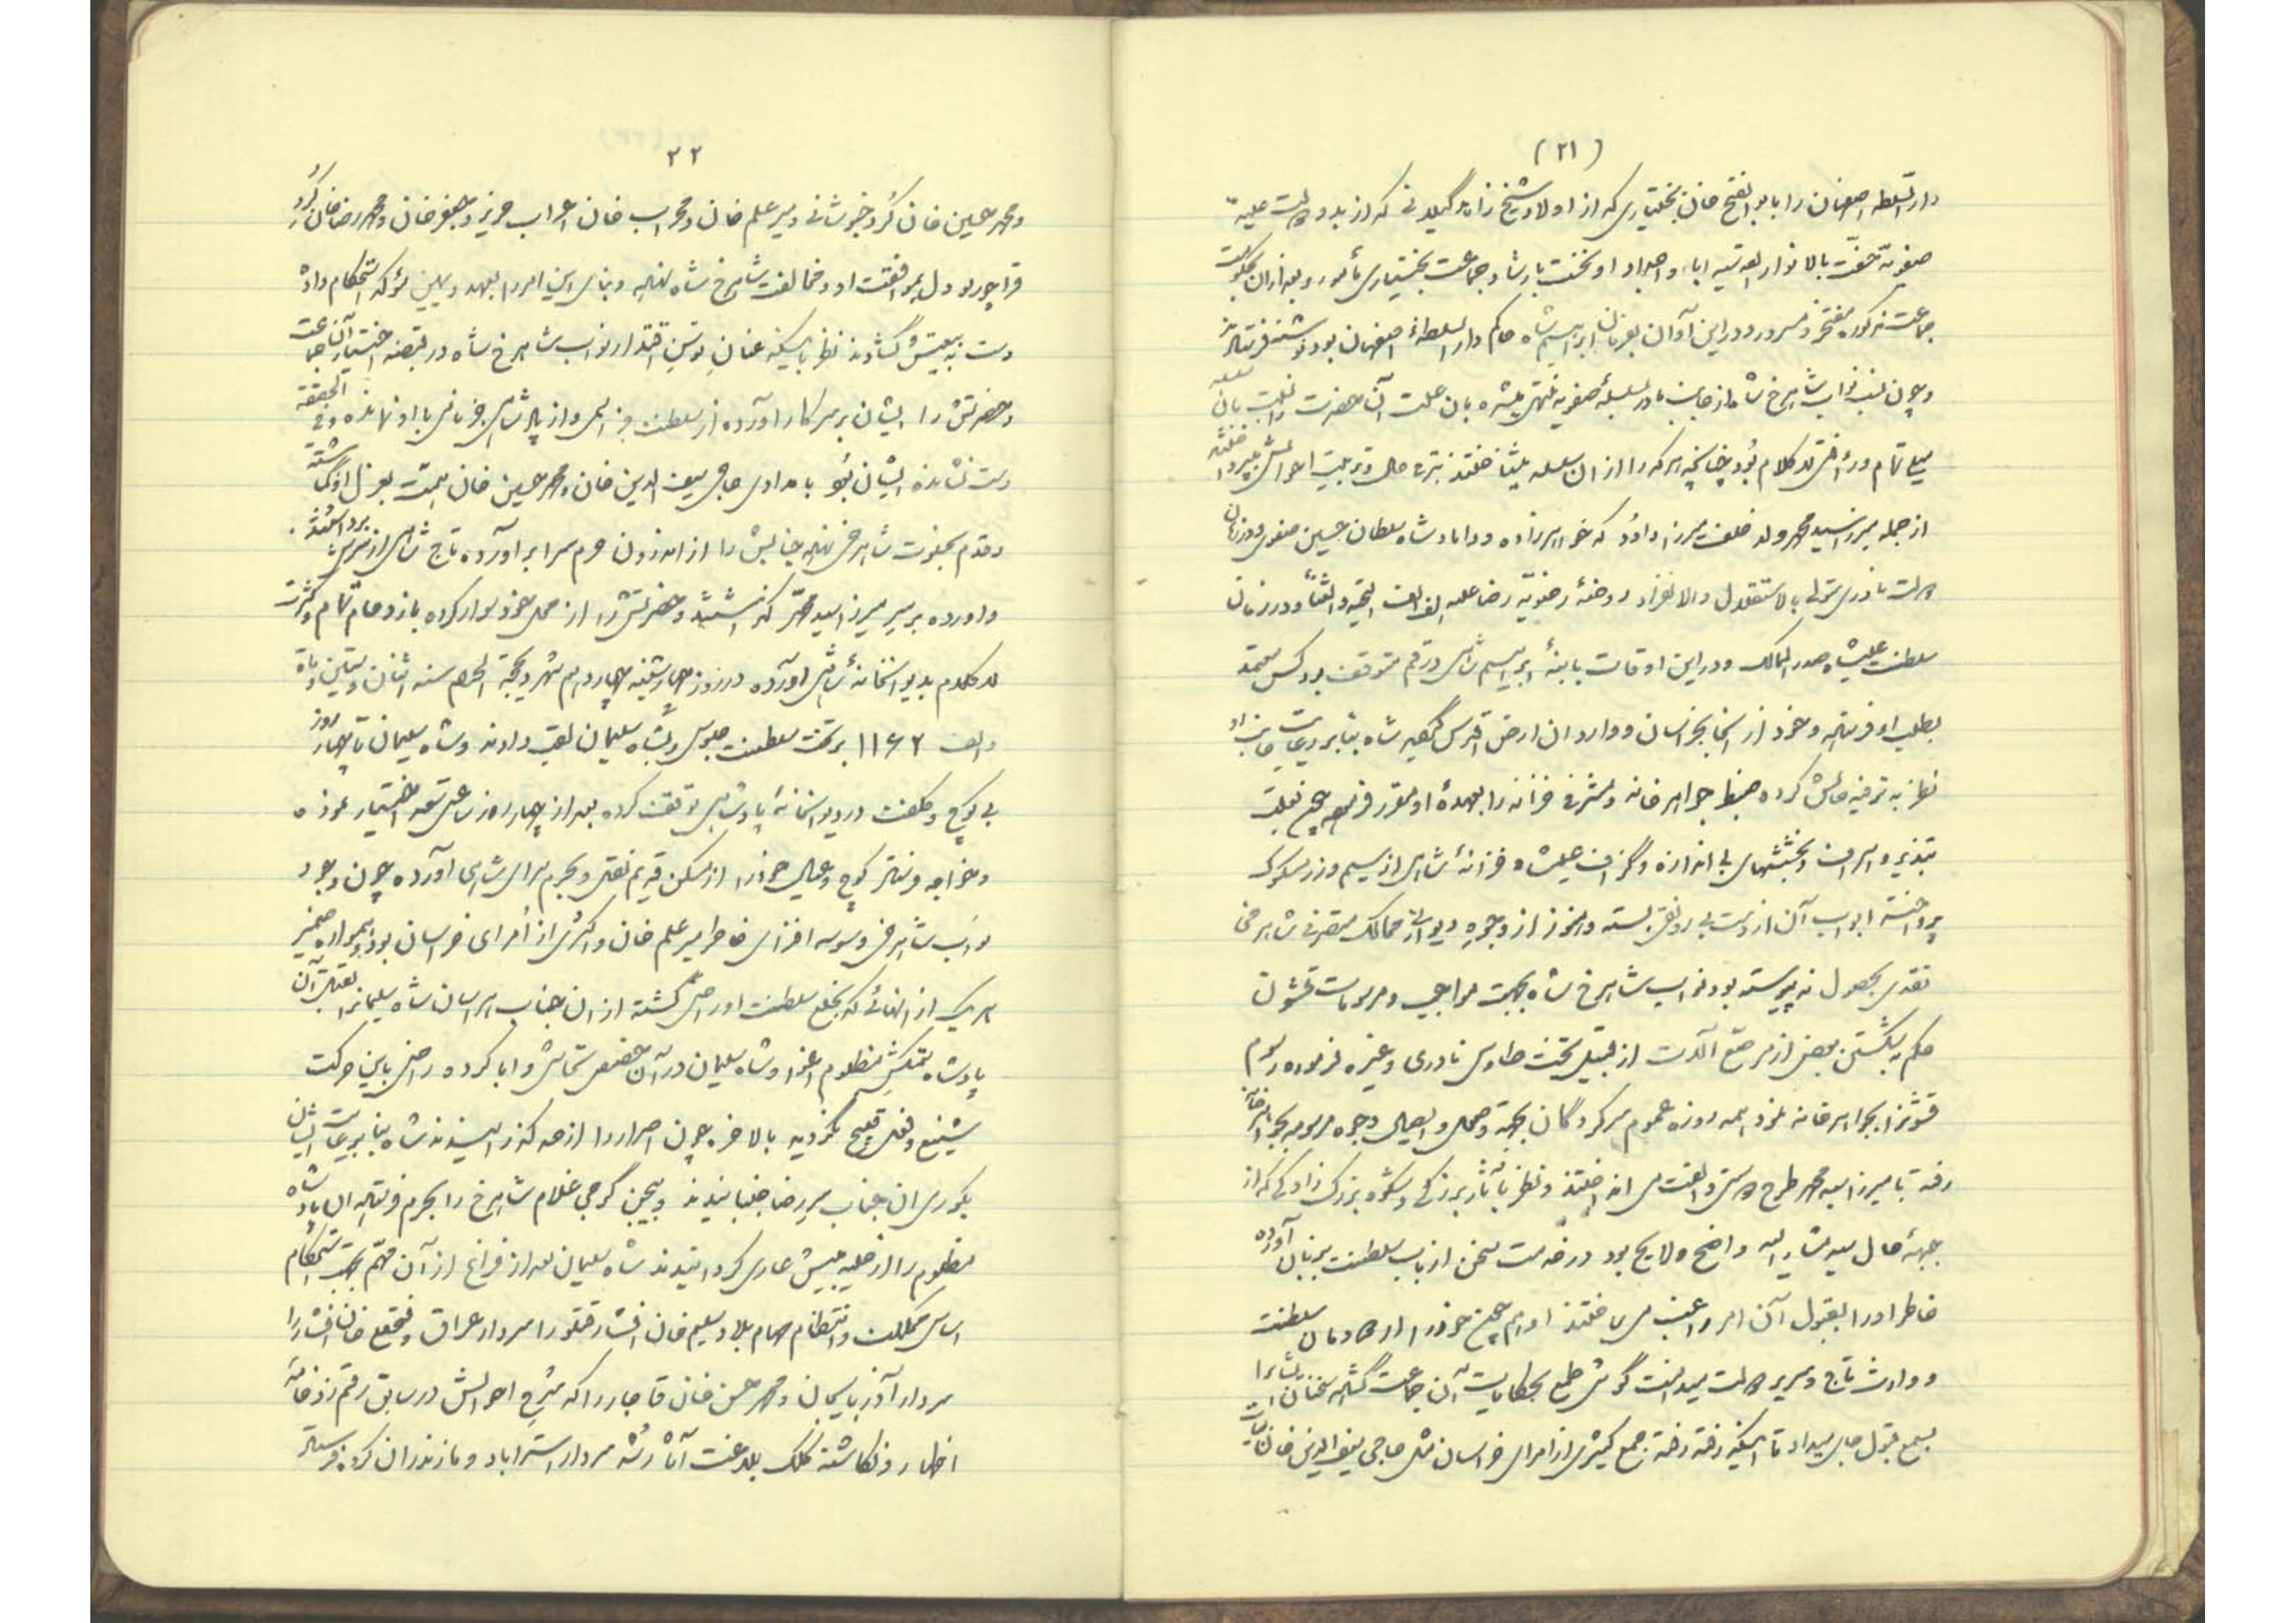 (۲۱)
دارالسلطه اصفهان را با ابوالفتح خان بختیاری که از اولاد شیخ زاهد گیلانی که از بدو دولت علیه
صفویه حفت بالانوار القدسیه اباء و اجداد او بخت یار شاد جماعت بختیاری مأمور و بعد از آن بحکومت
جماعت مذکوره مفتخر و مسرور و در این آوان بفرمان ابراهیم شاه حاکم دارالسلطنهٔ اصفهان بود نوشته فرستادند
و چون نسب نواب شاهرخ شاه از جانب مادر بسلسلهٔ صفویه منتهی میشد بان علت آن حضرت را بان سلسله
میلی تمام و رأفتی لاکلام بود چنانچه هر که را از ان سلسله میشناختند بترفیه حال و تربیت احوالش میپرداختند
از جمله میرزا سید محمد ولد خلف میرزا داود که خواهرزاده و داماد شاه سلطان حسین صفوی و در زمان
دولت نادری متولی بالاستقلال والانفراد روضهٔ رضویه رضا علیه الف الف التحیه والثنا و در زمان
سلطنت علیشاه صدرالممالک و در این اوقات با بنهٔ ابراهیم شاهی در قم متوقف بود کس معتمد
بطلب او فرستاده و خود از انجا بخراسان و وارد ان ارض اقدس گردید شاه بنابر رعایت جانب او
نظر به ترفیه حالش کرده ضبط جواهرخانه و مشرفی خزانه را بعهدهٔ او مقرر فرمود چون بعلت
تبذیر و اسراف و بخششهای بی اندازه و گزاف علیشاه خزانهٔ شاهی از سیم و زر مسکوک
پرداخته ابواب آن از دست بی رونقی بسته و هنوز از وجوه دیوانی ممالک متصرفی شاهرخی
نقدی بحصول نه پیوسته بود نواب شاهرخ شاه بجهت مواجب و مرسومات قشون
حکم بشکستن بعضی از مرصع آلات از قبیل تخت طاوس نادری و غیره فرموده رسوم
قشون را بجواهرخانه نمود همه روزه عموم سرکردگان بجهة وصول و ایصال وجوه مرسومه بجواهرخانه
رفته با میرزا سید محمد طرح دوستی و الفت می انداختند و نظر بآثار بزرگی و شکوه بزرگ زادگی که از
جبههٔ حال سید مشارالیه واضح و لایح بود در خدمت سخن از باب سلطنت بر زبان آورده
خاطر او را بقبول آن امر راغب می ساختند او هم چون خود را از دودمان سلطنت
و وارث تاج و سریر دولت میدانست گوش طمع بحکایات آن جماعت گشاده سخنان ایشانرا
بسمع قبول جای میداد تا اینکه رفته رفته جمع کثیری از امرای خراسان مثل حاجی سیف الدین خان بیات
۲۲
و محمد حسین خان کُرد خبوشانی و میر علم خان و محراب خان اعراب عزیز و جعفر خان و محمد رضا خان کُرد
قراچورلو دل بموافقت او و مخالفت شاهرخ شاه نهاده و بنای این امر را بعهد و یمین مؤکد استحکام داده
دست به بیعتش گشادند نظر باینکه عنان توسن اقتدار نواب شاهرخ شاه در قبضه اختیار آن جماعت
و حضرتش را ایشان بر سر کار آورده از سلطنت جز اسمی و از پادشاهی جز نامی با او نمانده و فی الحقیقه
دست نشانده ایشان بود بامدادی حاجی سیف الدین خان و محمد حسین خان همت بعزل او گماشته
و قدم بجلوت شاهرخی نهاده جنابش را از اندرون حرم سرا برآورده تاج شاهی از سرش برداشتند
و آورده بر سر میرزا سید محمد گذاشتند و حضرتش را از محل خود سوار کرده باز دحام تمام و کثرت
لاکلام بدیوانخانهٔ شاهی آورده در روز چهارشنبه چهاردهم شهر ذیحجة الحرام سنه اثنان و ستین و ماة
و الف ۱۱۶۲ بر تخت سلطنت جلوس و بشاه سلیمان لقب دادند و شاه سلیمان تا چهار روز
بی کوچ و کلفت در دیوانخانهٔ پادشاهی توقف کرده بعد از چهار روز ساعتی سعد اختیار نموده
و خواجه فرستاده کوچ و عیال خود را از مسکن قدیم نقل و بحرم سرای شاهی آورده چون وجود
نواب شاهرخی وسوسه افزای خاطر امیر علم خان و اکثری از اُمرای خراسان بود و همواره ضمیر
هر یک از انهائی که بخلع سلطنت او راضی گشته از ان جناب هراسان شاه سلیمانرا بقتل آن
پادشاه ستمکش مظلوم اغوا و شاه سلیمان در آن خصوص تحاشی و ابا کرده راضی باین حرکت
شنیع و فعل قبیح نگردید بالاخره چون اصرار را از حد گذرانیدند شاه بنابر رعایت ایشان
بکوری ان جناب سر رضا جنبانیدند و بیجن گرجی غلام شاهرخ را بحرم فرستاده ان پادشاه
مظلوم را از حلیه بینش عاری گردانیدند شاه سلیمان بعد از فراغ از آن مهم بجهت استحکام
اساس مملکت و انتظام مهام بلاد سلیم خان افشار قرقلو را سردار عراق و فتحعلی خان افشار را
سردار آذربایجان و محمد حسن خان قاجار را که شرح احوالش در سابق رقم زد خامهٔ
اظهار و نگاشته کلک بلاغت آثار شد سردار استراباد و مازندران کرده فرستاد